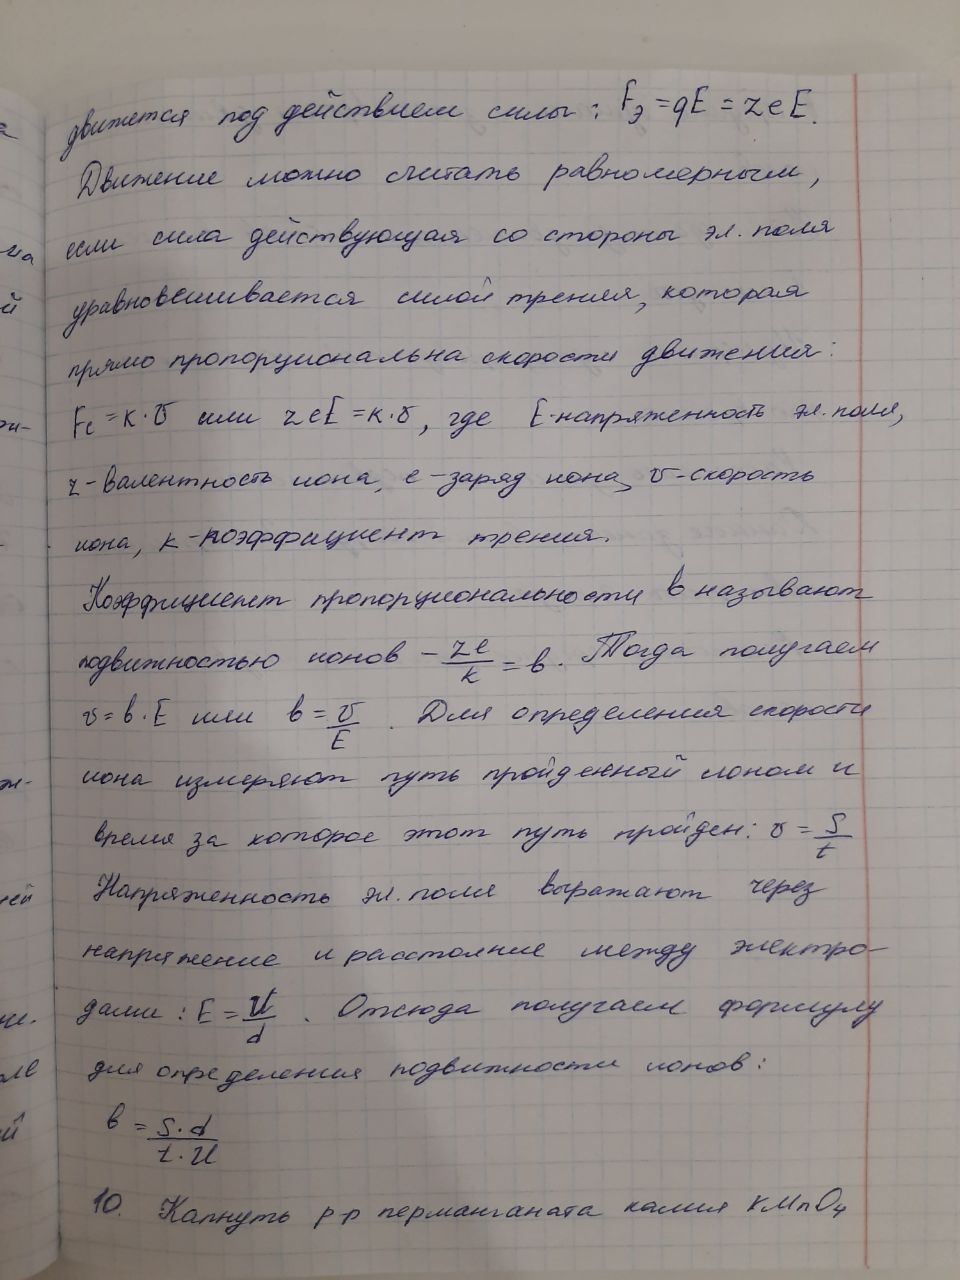 движется под действием силы: Fэ = qE = zeE.
Движение можно считать равномерным,
если сила действующая со стороны эл. поля
уравновешивается силой трения, которая
прямо пропорциональна скорости движения:
Fc = к·v или zeE = к·v, где E-напряженность эл. поля,
z - валентность иона, e - заряд иона, v - скорость
иона, к - коэффициент трения.
Коэффициент пропорциональности в называют
подвижностью ионов - ze/k = в. Тогда получаем
v = в·E или в = v/E. Для определения скорости
иона измеряют путь пройденный ионом и
время за которое этот путь пройден: v = S/t
Напряженность эл. поля выражают через
напряжение и расстояние между электро-
дами: E = U/d. Отсюда получаем формулу
для определения подвижности ионов:
в = S·d/t·U
10. Капнуть р-р перманганата калия KMnO4